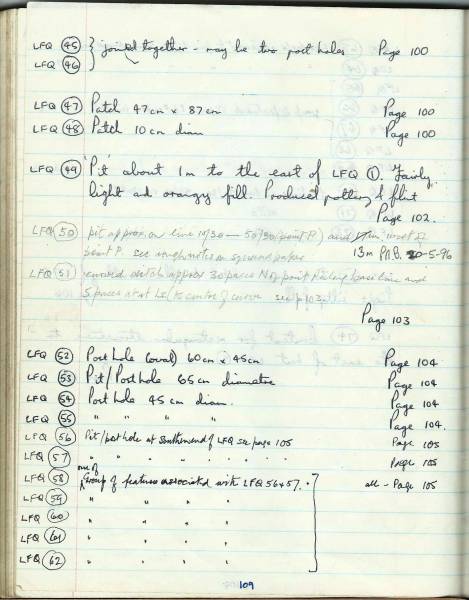 LFQ 45 } joined together - may be two post holes Page 100
LFQ 46
LFQ 47 Patch 47cm x 87cm Page 100
LFQ 48 Patch 10cm diam Page 100
LFQ 49 'Pit' about 1m to the east of LFQ 1. Fairly
light and orangy fill. Produced pottery & flint
Page 102.
LFQ 50 pit approx. on line 10/30 — 50/30 (point P) and west of
point P. see rough notes on squared paper 13m P.N.B. 20-5-96
LFQ 51 curved ditch approx 30 paces N of point P along base line and
5 paces at rt Ls (to centre of curve see p 103
Page 103
LFQ 52 Post hole (oval) 60cm x 45cm Page 104
LFQ 53 Pit/Post hole 65cm diametre Page 104
LFQ 54 Post hole 45 cm diam. Page 104
LFQ 55 " " " " Page 104.
LFQ 56 Pit/post hole at Southern end of LFQ see page 105 Page 105
LFQ 57 " " " " " " " Page 105
one of
LFQ 58 Group of features associated with LFQ 56+57. all - Page 105
LFQ 59 " " " "
LFQ 60 " " " "
LFQ 61 " " " "
LFQ 62 " " " "
109